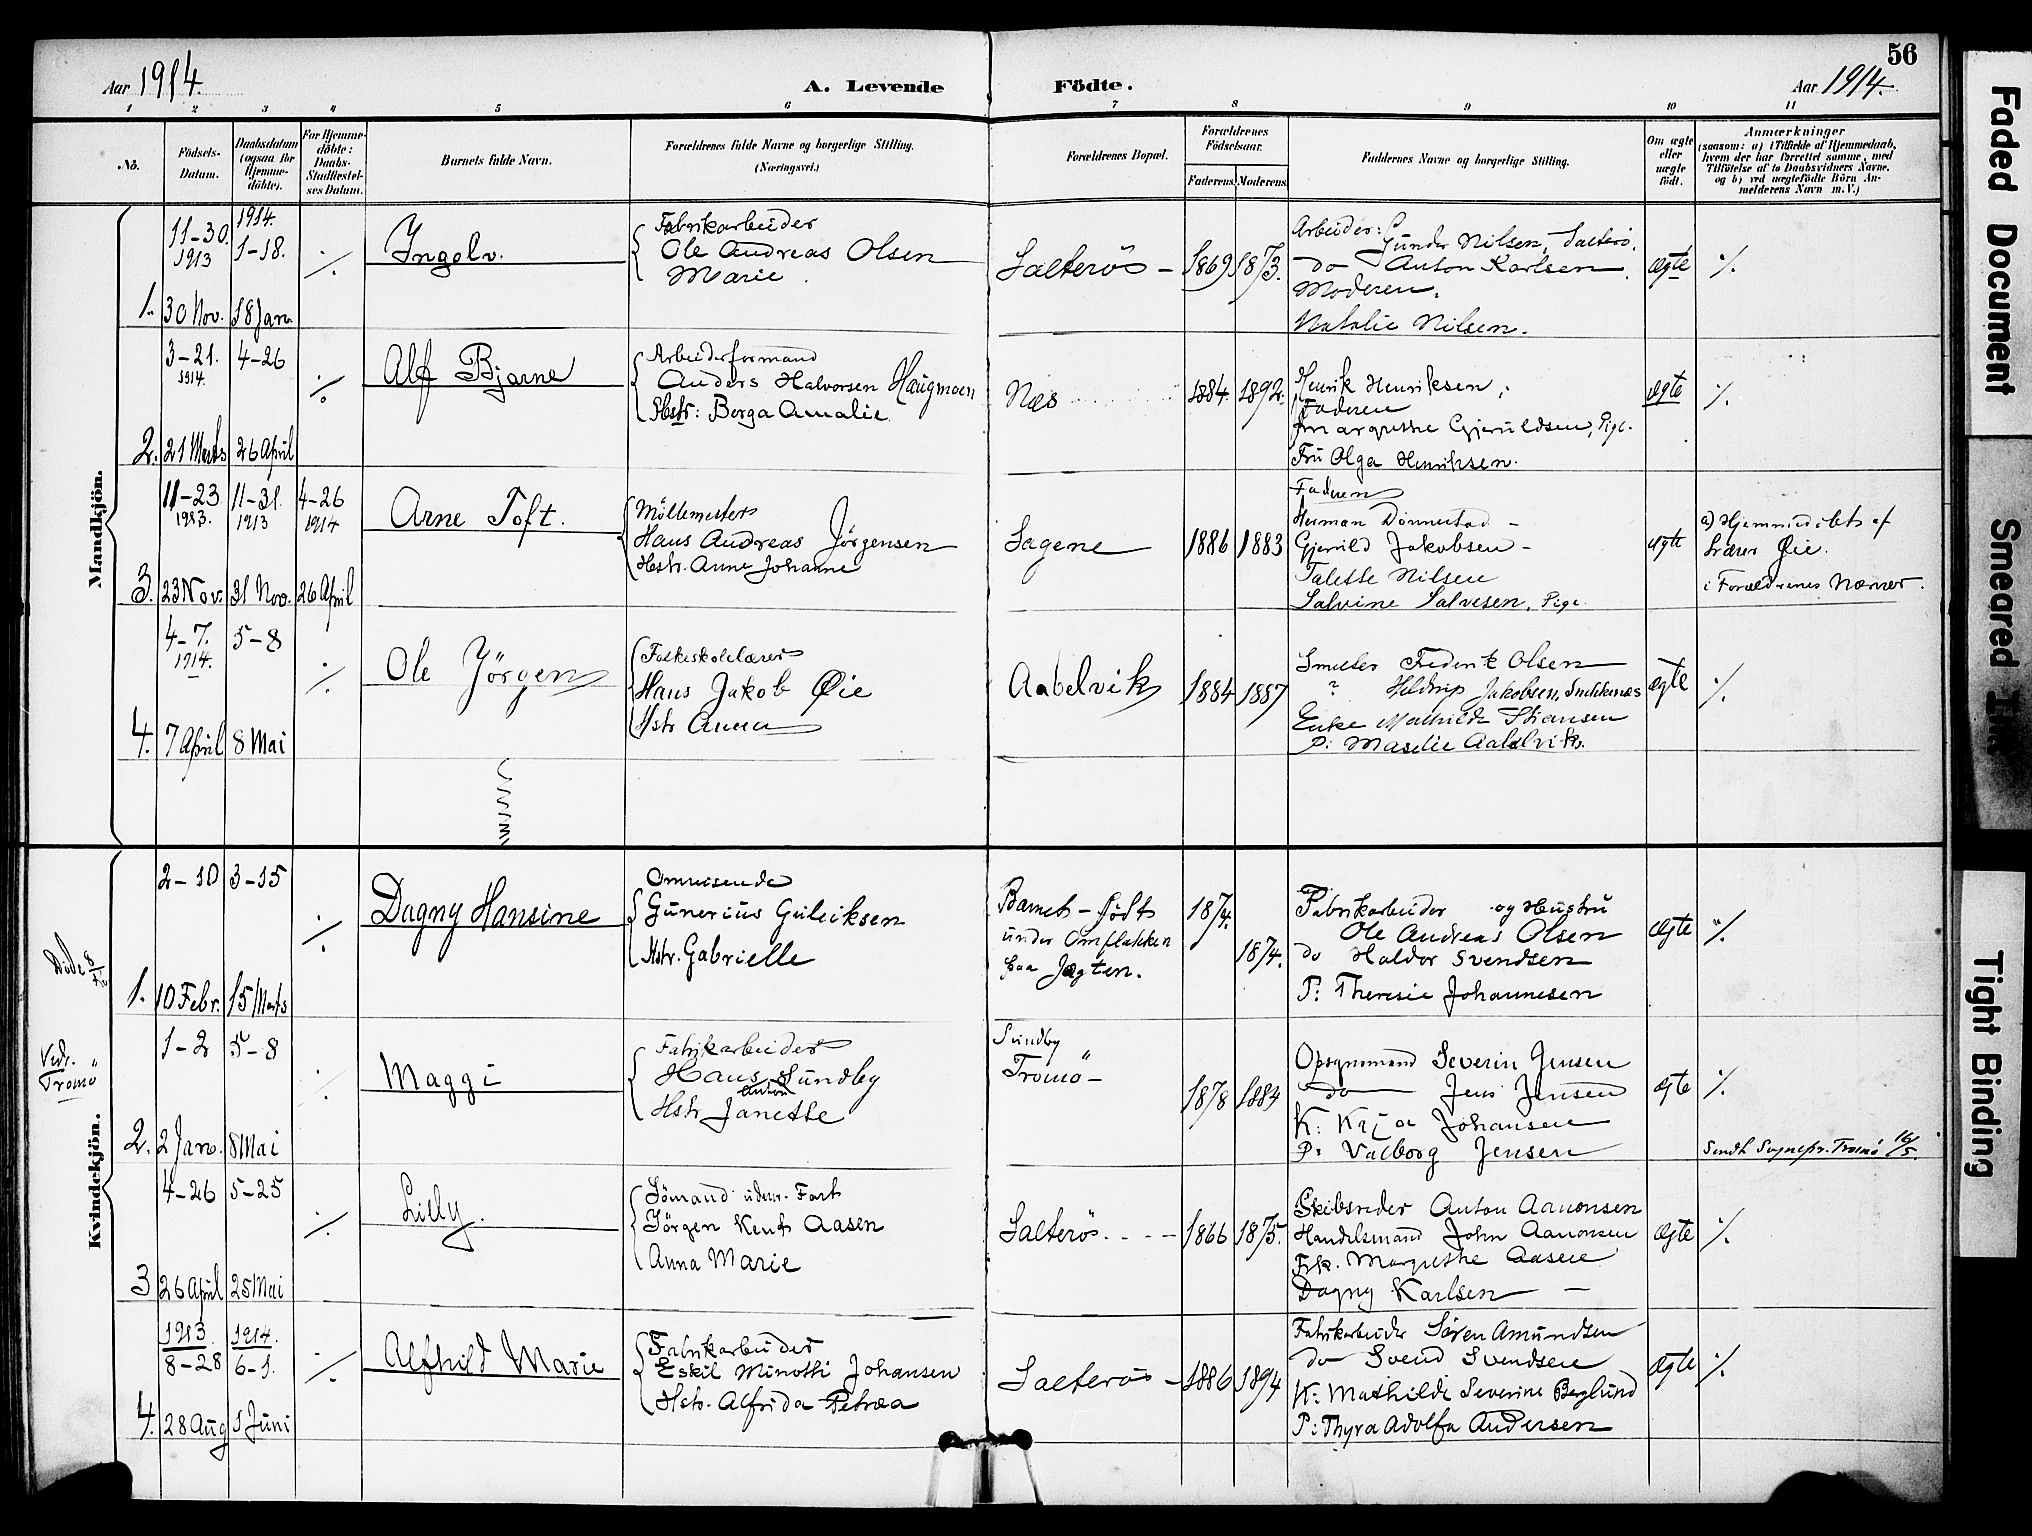 56
Aar 1914.
A. Levende Födte.
Aar 1914.
1 2 3 4 5 6 7 8 9 10 11
No.
Födsels-Datum.
Daabsdatum (ogsaa for Hjemme-döbte).
For Hjemme-döbte: Daabs-Stadfæstel-ses Datum.
Barnets fulde Navn.
Forældrenes fulde Navne og borgerlige Stilling. (Næringsvei.)
Forældrenes Bopæl.
Forældrenes Födselsaar.
Faderens Moderens
Faddernes Navne og borgerlige Stilling.
Om ægte eller uægte födt.
Anmærkninger
(saasom: a) i Tilfælde af Hjemmedaab,
hvem der har forrettet samme, med
Tilföielse af to Daabsvidners Navne,
og b) ved uægtefödte Börn An-
melderens Navn m. V.)
Mandkjön.
1.
11-30. 1913
30 Nov.
1914. 1-18.
18 Jan.
./.
Ingolv.
Fabrikarbeider
Ole Andreas Olsen
Marie
Salterös
1869 1873.
Arbeider: Gunder Nilsen, Salterö.
do Anton Karlsen
Moderen.
Natalie Nilsen.
ægte
./.
2.
3-21. 1914.
21 Marts
4-26
26 April
./.
Alf Bjarne
Arbeiderformand
Anders Halvorsen Haugmoen
Hstr: Borga Amalie
Næs
1884. 1892.
Henrik Henriksen,
Faderen
Margrethe Gjeruldsen, Pige.
Fru Olga Henriksen.
ægte
./.
3.
11-23 1913.
23 Nov.
11-31. 1913
31 Nov.
4-26 1914
26 April
Arne Toft.
Möllemester
Hans Andreas Jörgensen
Hstr. Anne Johanne
Sagene
1886 1883
Faderen
Herman Dönnestad
Gjeruld Jakobsen
Talette Nilsen
Salvine Salvesen, Pige.
ægte
a) Hjemmedöbt af
Lærer Øie.
i Forældrenes Nærvær.
4.
4-7. 1914.
7 April
5-8
8 Mai
./.
Ole Jörgen
Folkeskolelærer
Hans Jakob Øie
Hstr Anna
Aabelvik
1884 1887
Smeler Frederik Olsen
Jakobsen,
Enke Mathilde Stiansen
P: Aabelvik.
ægte
./.
Kvindekjön.
Döbt
1.
2-10
10 Febr.
3-15
15 Marts
./.
Dagny Hansine
Omreisende
Gunerius Guliksen
Hstr. Gabrielle
Barnet födt
under Omflakken
paa Jagten.
1874. 1874.
Fabrikarbeider og Hustru
Ole Andreas Olsen
do Haldor Svendsen
P: Theresie Johannesen
Ægte
./.
Vedr.
Tromö
2.
1-2
2 Jan.
5-8
8 Mai
./.
Maggi
Fabrikarbeider
Hans Anton Sundby
Hstr Janette
Sundby
Tromö
1878 1884
Opsynsmand Severin Jensen
do Jens Jensen
K: Kaja Johansen
P: Valborg Jensen
Ægte
./.
Sendt Sognepr. Tromö 16/5.
3
4-26
26 April
5-25
25 Mai
./.
Lilly.
Sömand udenr. Fart
Jörgen Knut Aasen
Anna Marie
Salterös
1866 1875.
Skibsreder Anton Aanonsen
Handelsmand John Aanonsen
Frk. Margrethe Aasen
Dagny Karlsen
Ægte
./.
4.
1913 8-28
28 Aug
1914. 6-1.
1 Juni
./.
Alfhild Marie
Fabrikarbeider
Eskil Minotti Johansen
Hstr. Alfrida Petræa
Salterös
1886 1894
Fabrikarbeider Sören Amundsen
do Svend Svendsen
K: Mathilde Severine Berglund
P: Thyra Adolfa Andersen
Ægte
./.
Faded Document
Smeared Ink
Tight Binding